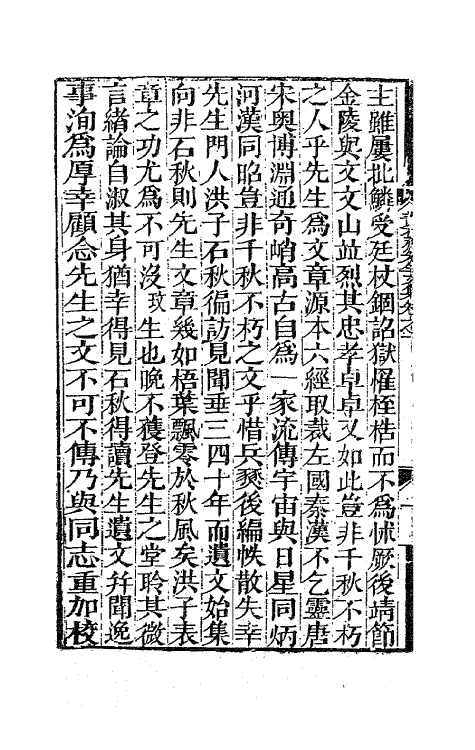 主雖屢批鱗受廷杖錮詔獄罹桎梏而不爲怵厥後靖節
金陵與文文山並烈其忠孝卓卓又如此豈非千秋不朽
之人乎先生爲文章源本六經取裁左國秦漢不乞靈唐
宋奥博淵通奇峭高古自爲一家流傳宇宙與日星同炳
河漢同昭豈非千秋不朽之文乎惜兵燹後編帙散失幸
先生門人洪子石秋徧訪見聞垂三四十年而遺文始集
向非石秋則先生文章幾如梧葉飄零於秋風矣洪子表
章之功尤爲不可沒玫生也晚不獲登先生之堂聆其微
言緒論自淑其身猶幸得見石秋得讀先生遺文幷聞逸
事洵爲厚幸顧念先生之文不可不傳乃與同志重加校